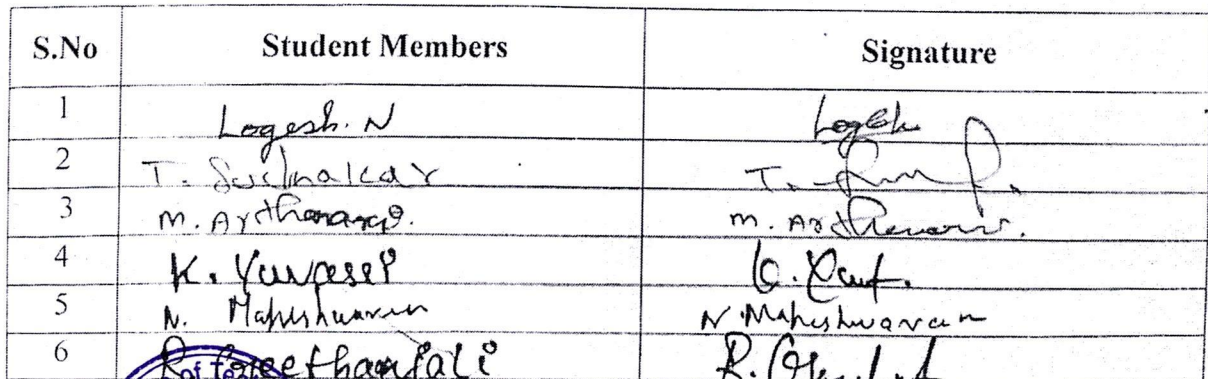 S.No Student Members Signature
1 Logesh. N Logesh
2 T. Sudhakar T.
3 M. Ardhanari. M. Ardhanari.
4 K. Yuvasri K.
5 N. Maheshwaran N. Maheshwaran
6 R. Geethanjali R.
of Te